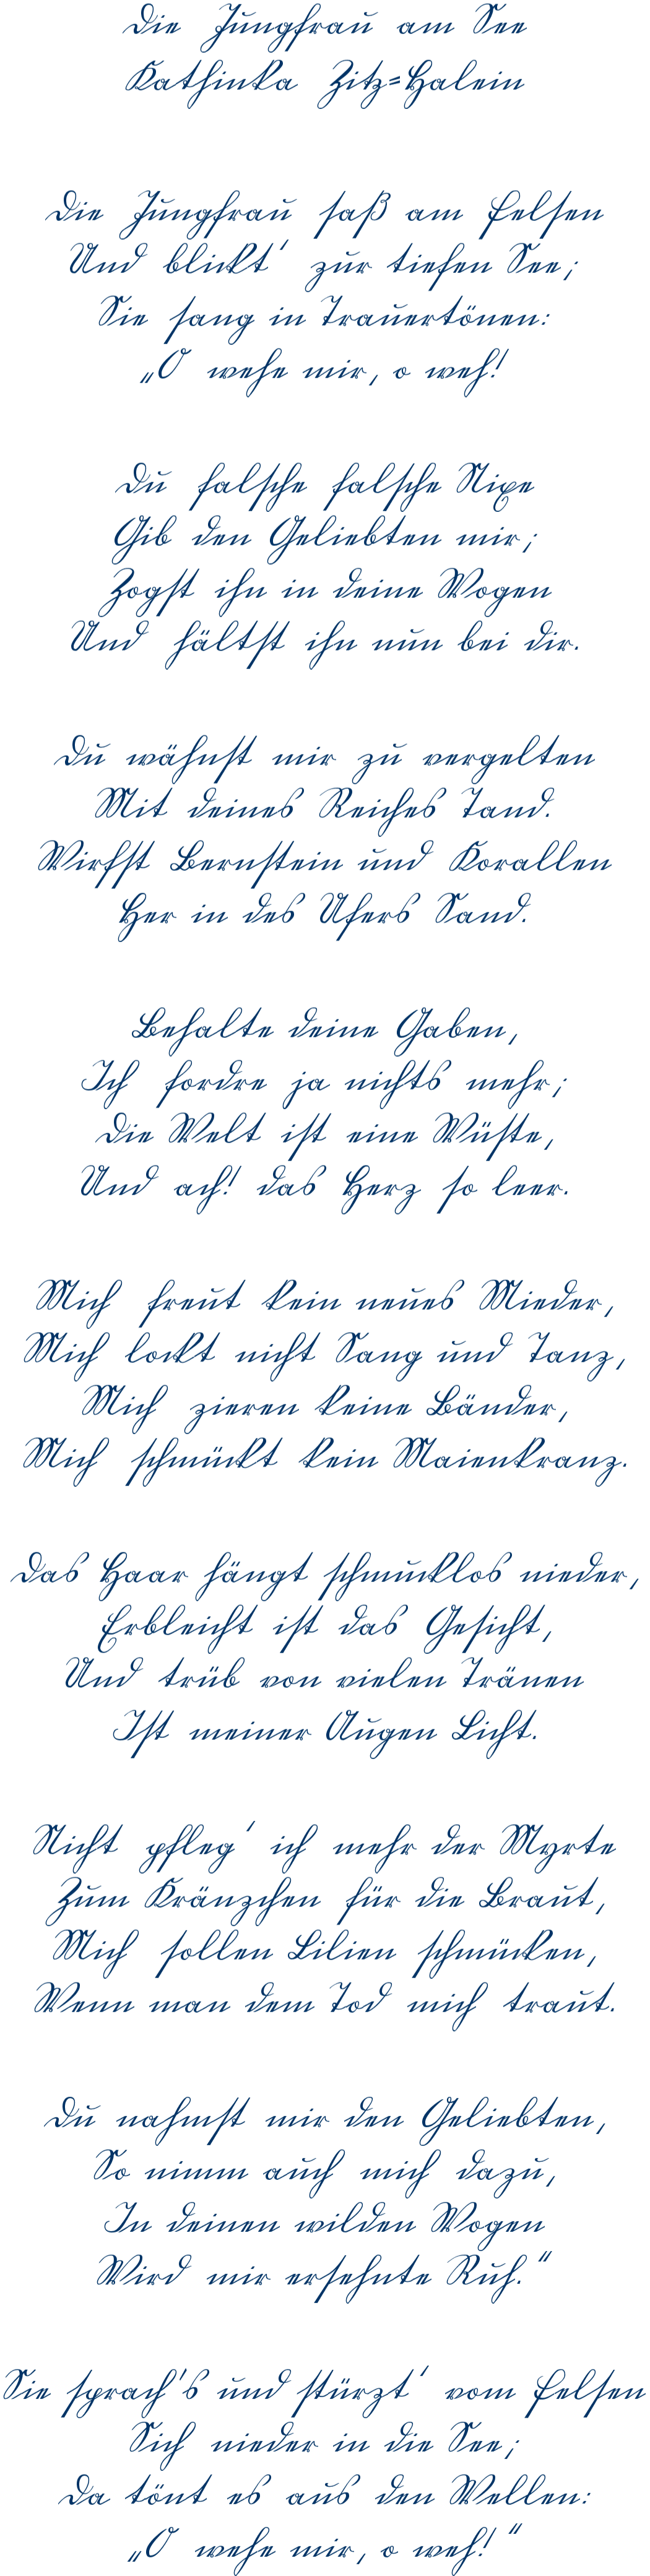 Die Jungfrau am See
Kathinka Zitz=Halein
Die Jungfrau saß am Felsen
Und blickt' zur tiefen See;
Sie sang in Trauertönen:
„O wehe mir, o weh!
Du falsche falsche Nixe
Gib den Geliebten mir;
Zogst ihn in deine Wogen
Und hältst ihn nun bei dir.
Du wähnst mir zu vergelten
Mit deines Reiches Tand.
Wirfst Bernstein und Korallen
Her in des Ufers Sand.
Behalte deine Gaben,
Ich fordre ja nichts mehr;
Die Welt ist eine Wüste,
Und ach! das Herz so leer.
Mich freut kein neues Mieder,
Mich lockt nicht Sang und Tanz,
Mich zieren keine Bänder,
Mich schmückt kein Maienkranz.
Das Haar hängt schmucklos nieder,
Erbleicht ist das Gesicht,
Und trüb von vielen Tränen
Ist meiner Augen Licht.
Nicht pfleg' ich mehr der Myrte
Zum Kränzchen für die Braut,
Mich sollen Lilien schmücken,
Wenn man dem Tod mich traut.
Du nahmst mir den Geliebten,
So nimm auch mich dazu,
In deinen wilden Wogen
Wird mir ersehnte Ruh.“
Sie sprach's und stürzt' vom Felsen
Sich nieder in die See;
Da tönt es aus den Wellen:
„O wehe mir, o weh!“